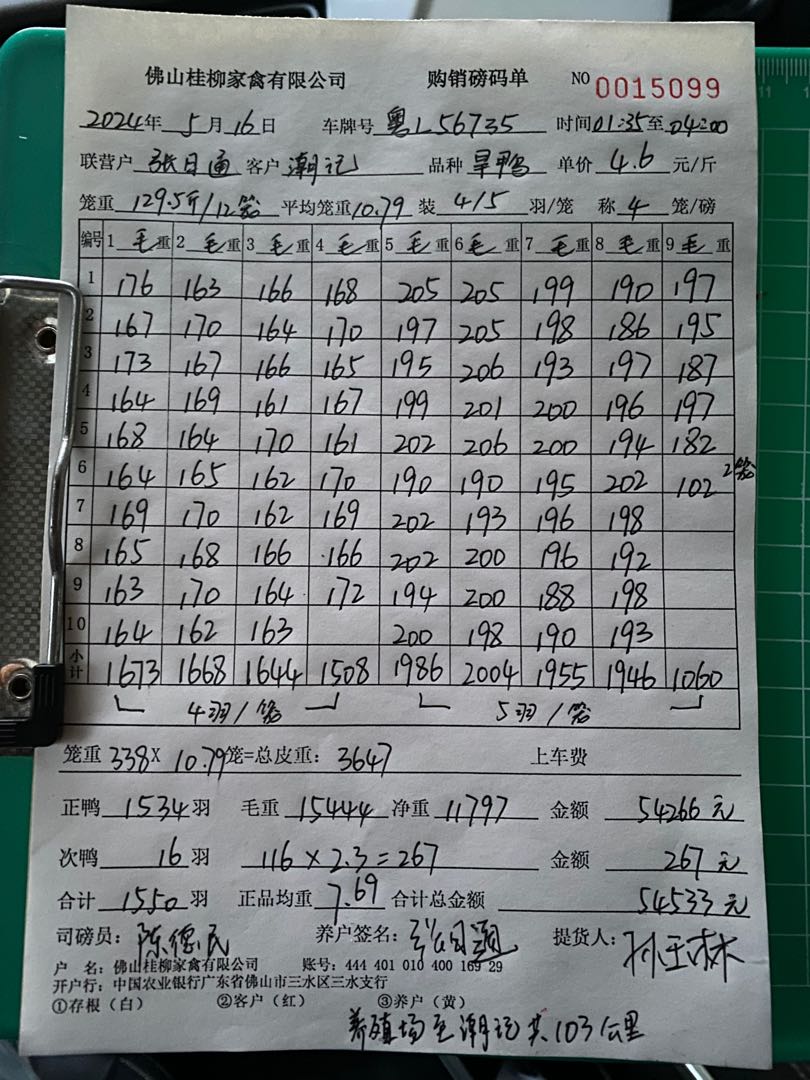 佛山桂柳家禽有限公司 购销磅码单 NO 0015099
2024年 5月 16日 车牌号 粤L56735 时间 01:35至 04:00
联营户 张日通 客户 潮记 品种 旱鸭 单价 4.6 元/斤
笼重 129.5斤/12笼 平均笼重 10.79 装 4/5 羽/笼 称 4 笼/磅
编号 1 毛重 2 毛重 3 毛重 4 毛重 5 毛重 6 毛重 7 毛重 8 毛重 9 毛重
1 176 163 166 168 205 205 199 190 197
2 167 170 164 170 197 205 198 186 195
3 173 167 166 165 195 206 193 197 187
4 164 169 161 167 199 201 200 196 197
5 168 164 170 161 202 206 200 194 182
6 164 165 162 170 190 190 195 202 102 2笼
7 169 170 162 169 202 193 196 198
8 165 168 166 166 202 200 196 192
9 163 170 164 172 194 200 188 198
10 164 162 163 200 198 190 193
小计 1673 1668 1644 1508 1986 2004 1955 1946 1060
4羽/笼 5羽/笼
笼重 338× 10.79笼=总皮重: 3647 上车费
正鸭 1534 羽 毛重 15444 净重 11797 金额 54266 元
次鸭 16 羽 116 × 2.3 = 267 金额 267 元
合计 1550 羽 正品均重 7.69 合计总金额 54533 元
司磅员: 陈德民 养户签名: 张日通 提货人: 孙玉林
户 名: 佛山桂柳家禽有限公司 账号: 444 401 010 400 169 29
开户行: 中国农业银行广东省佛山市三水区三水支行
①存根(白) ②客户(红) ③养户(黄)
养殖场至潮记共103公里